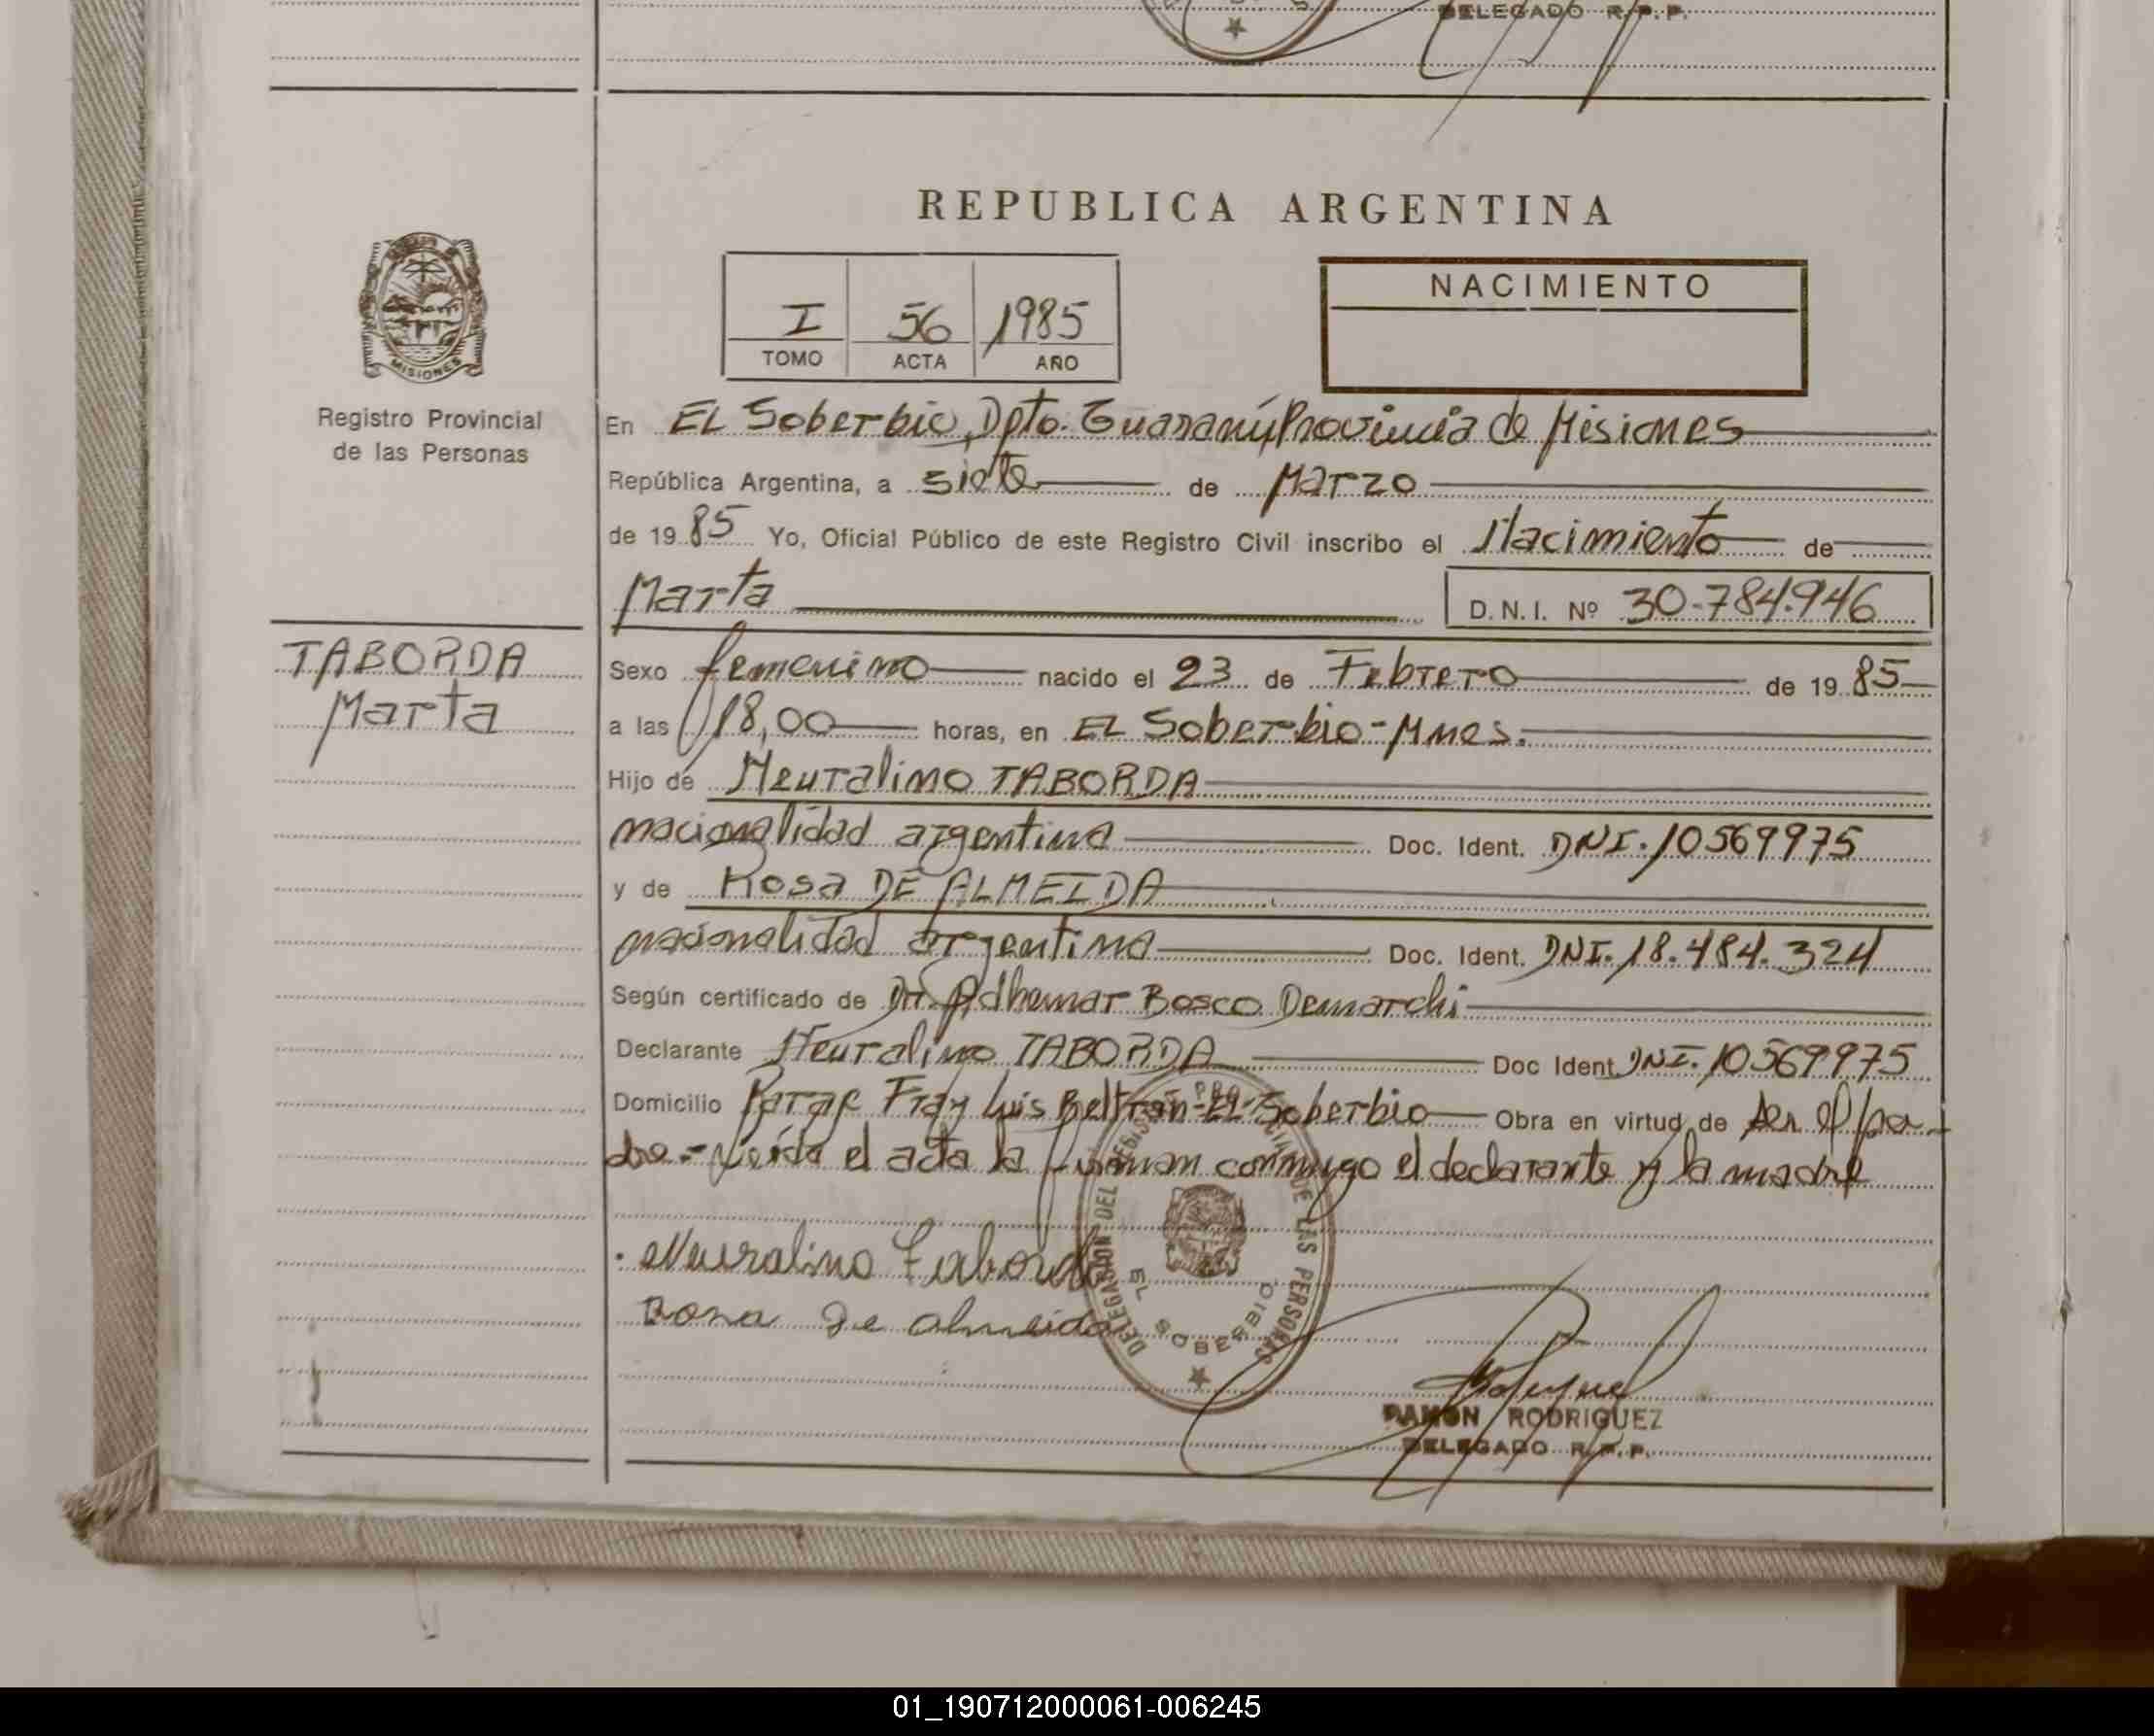 DELEGADO R.P.P.
REPUBLICA ARGENTINA
NACIMIENTO
I 56 1985
TOMO ACTA AÑO
MISIONES
Registro Provincial
de las Personas
En EL Soberbio, Dpto. Guaraní, Provincia de Misiones
República Argentina, a siete de Marzo
de 1985 Yo, Oficial Público de este Registro Civil inscribo el Nacimiento de
Marta D.N.I. Nº 30-784.946
TABORDA
Marta
Sexo femenino nacido el 23 de Febrero de 1985
a las 18,00 horas, en EL Soberbio-Mnes.
Hijo de Neuralino TABORDA
nacionalidad argentina Doc. Ident. DNI. 10569975
y de Rosa DE ALMEIDA
nacionalidad argentina Doc. Ident. DNI. 18.484.324
Según certificado de Dr. Adhemar Bosco Demarchi
Declarante Neuralino TABORDA Doc Ident. DNI. 10569975
Domicilio Paraje Fray Luis Beltran-EL Soberbio Obra en virtud de ser el pa-
dre.- Leída el acta la firman conmigo el declarante y la madre
Neuralino Taborda
Rosa De almeida
DELEGACION DEL REGISTRO PROVINCIAL DE LAS PERSONAS
EL SOBERBIO
RAMON RODRIGUEZ
DELEGADO R.P.P.
01_190712000061-006245